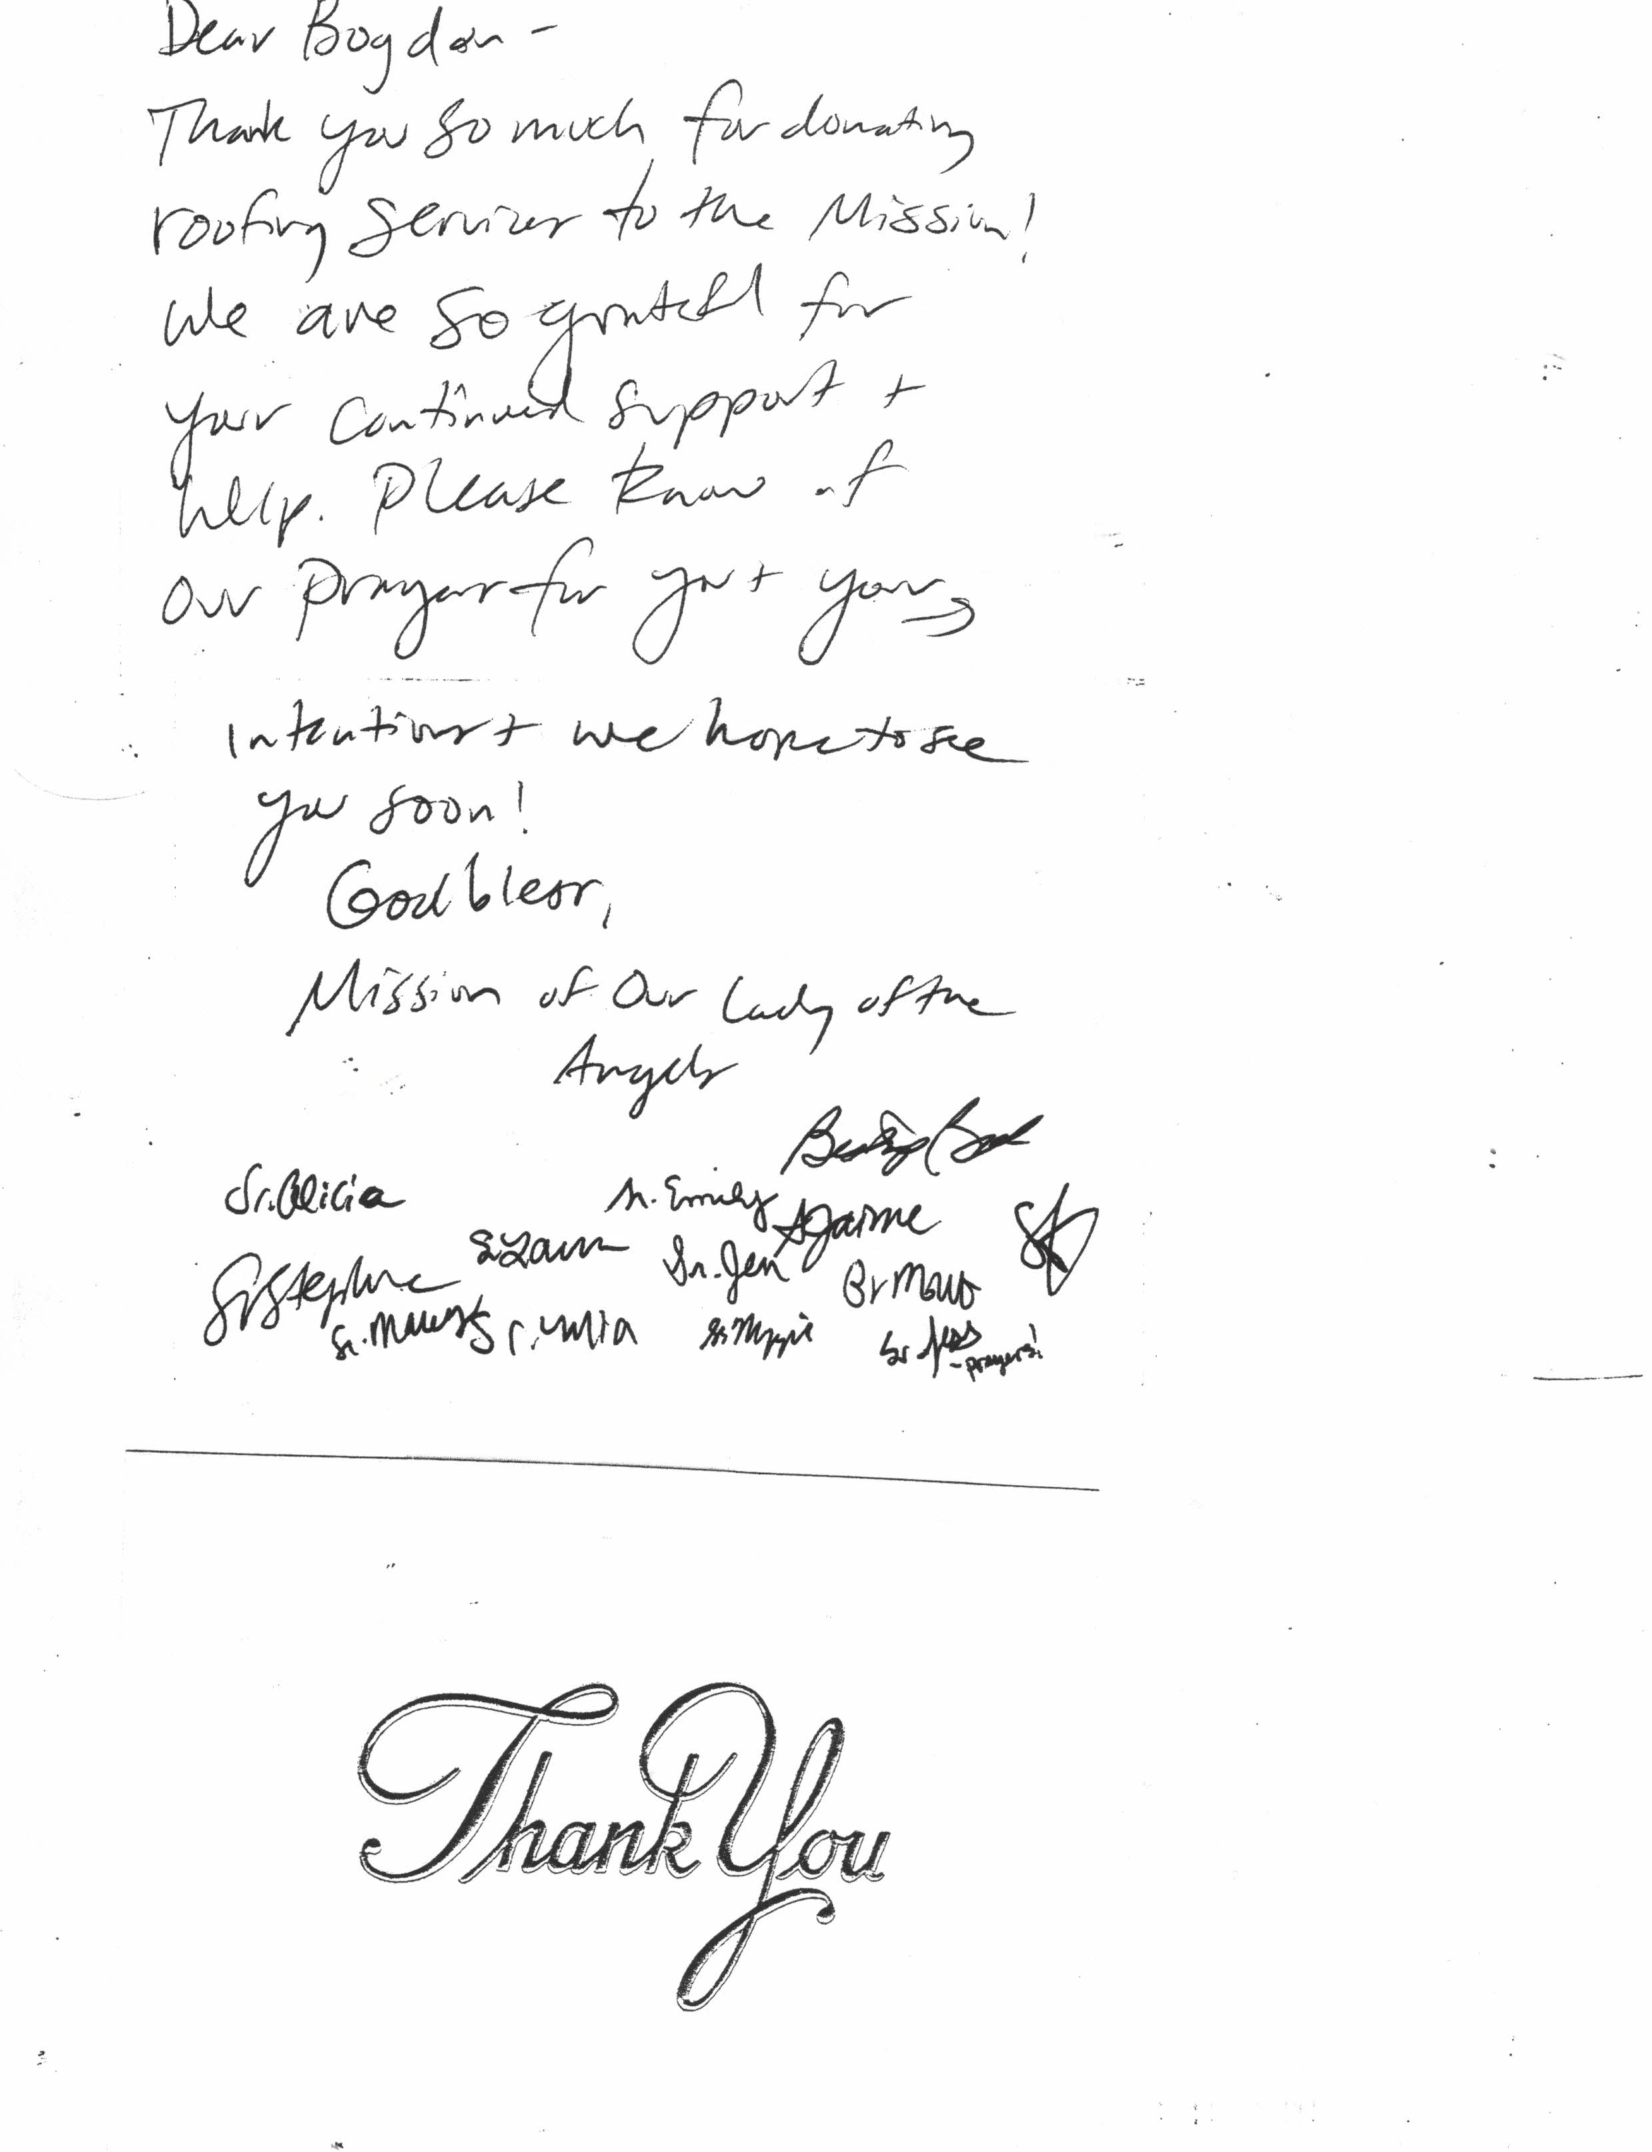 Dear Bogdan -
Thank you so much for donating
roofing services to the Mission!
We are so grateful for
your continued support +
help. Please know of
our prayers for you + your
intentions + we hope to see
you soon!
God bless,
Mission of Our Lady of the
Angels
Sr. Alicia
Sr. Emily
Sr. Jaime
Sr Stephanie
Sr. Jen
Sr. Julia
Sr. Maggie
Sr Jess
- prayers!
Thank You